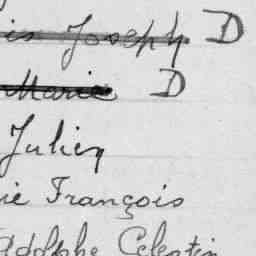 is Joseph D
Marie D
Julien
ie François
Adolphe Celestin